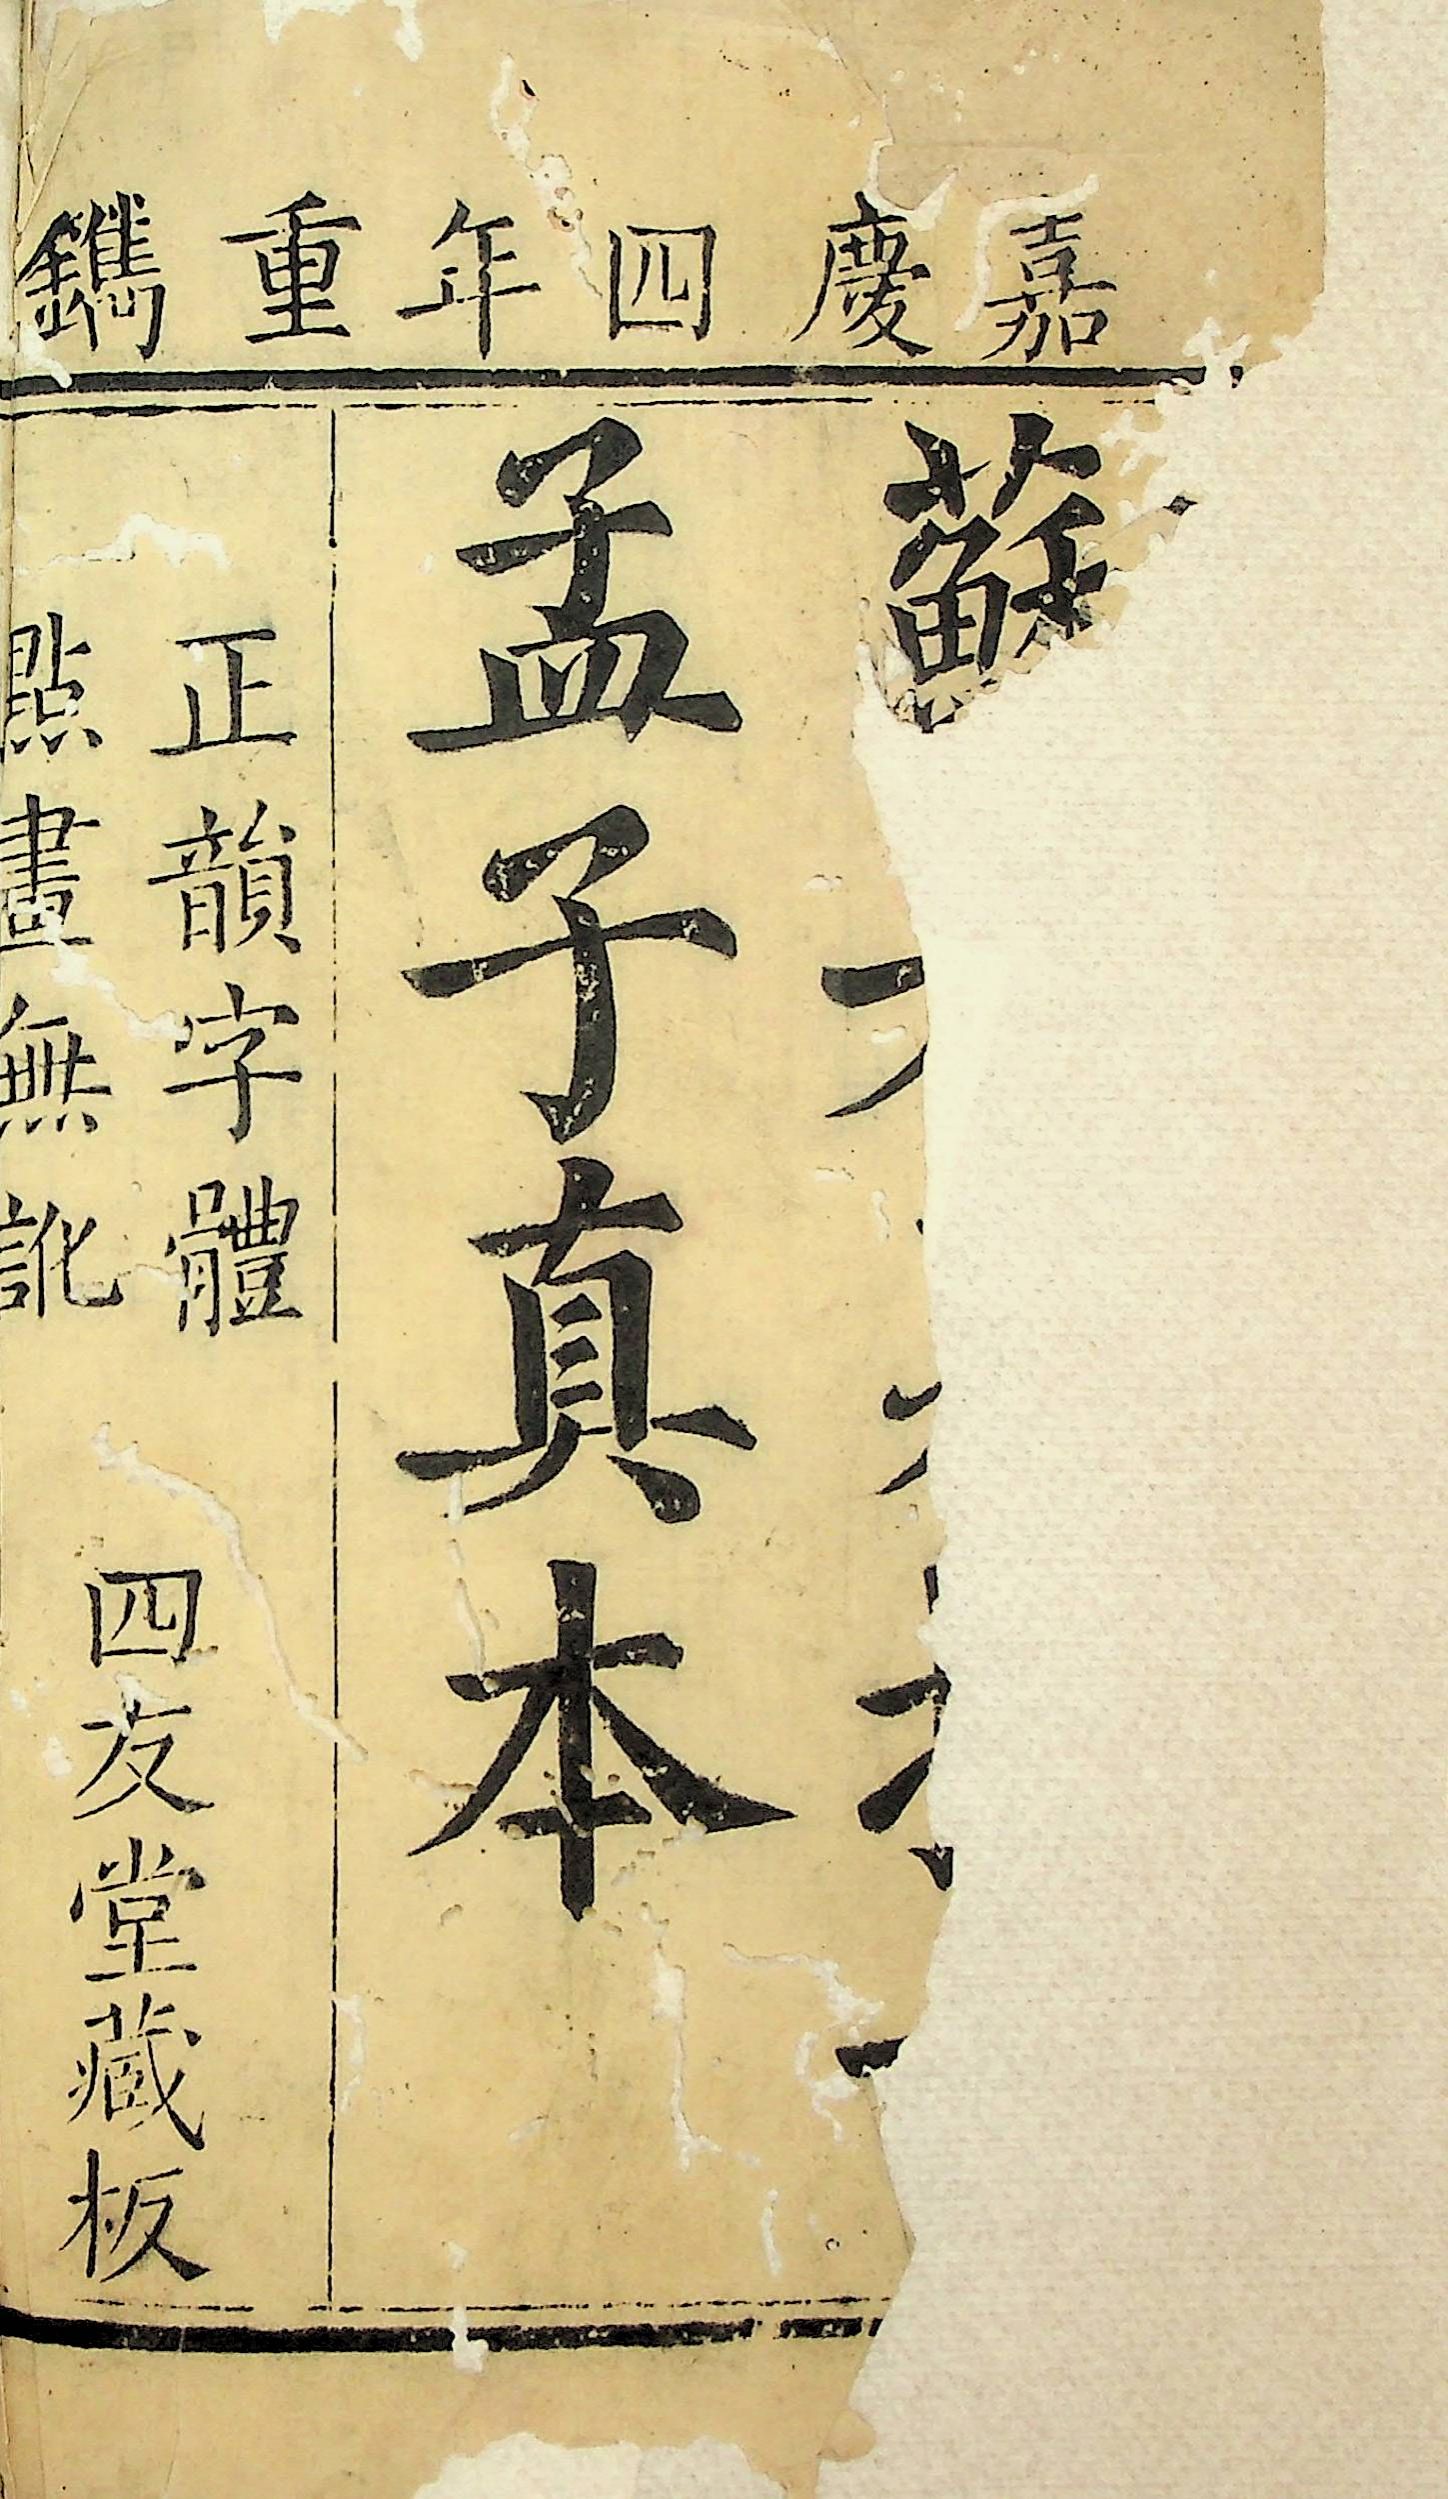 嘉慶四年重鐫
蘇
孟子真本
正韻字體
點畫無訛
四友堂藏板